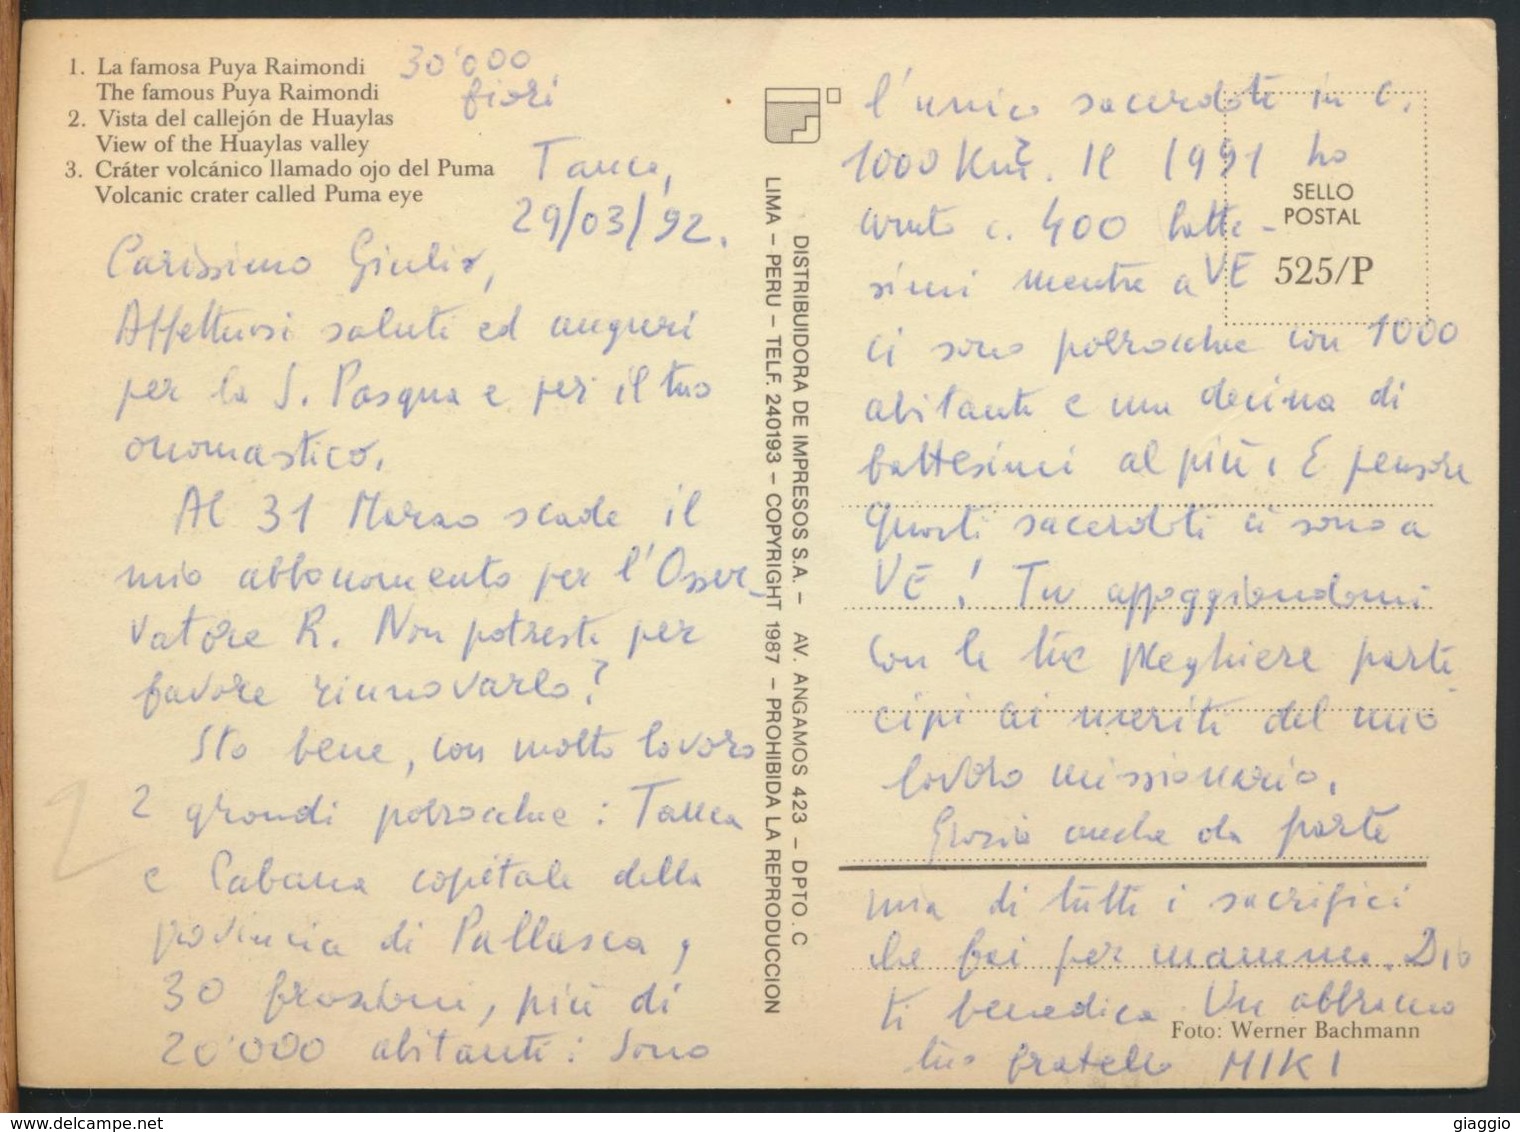 1. La famosa Puya Raimondi
The famous Puya Raimondi
2. Vista del callejón de Huaylas
View of the Huaylas valley
3. Cráter volcánico llamado ojo del Puma
Volcanic crater called Puma eye
30'000
fiori
Tauca,
29/03/92.
Carissimo Giulio,
Affettuosi saluti ed auguri
per la S. Pasqua e per il tuo
onomastico.
Al 31 Marzo scade il
mio abbonamento per l'Osser-
vatore R. Non potresti per
favore rinnovarlo?
Sto bene, con molto lavoro
2 grandi parrocchie: Tauca
e Cabana capitale della
provincia di Pallasca,
30 frazioni, più di
20'000 abitanti: Sono
LIMA – PERU – TELF. 240193 – COPYRIGHT 1987 – PROHIBIDA LA REPRODUCCION
DISTRIBUIDORA DE IMPRESOS S.A. – AV. ANGAMOS 423 – DPTO. C
l'unico sacerdote in c.
1000 Km². Il 1991 ho
avuto c. 400 batte-
simi mentre a VE
ci sono parrocchie con 1000
abitanti e una decina di
battesimi al più. E pensare
quanti sacerdoti ci sono a
VE! Tu appoggiandomi
con le tue preghiere parte
cipi ai meriti del mio
lavoro missionario.
Grazie anche da parte
mia di tutti i sacrifici
che fai per mamma. Dio
ti benedica. Un abbraccio
tuo fratello MIKI
SELLO
POSTAL
525/P
Foto: Werner Bachmann
2
giaggio